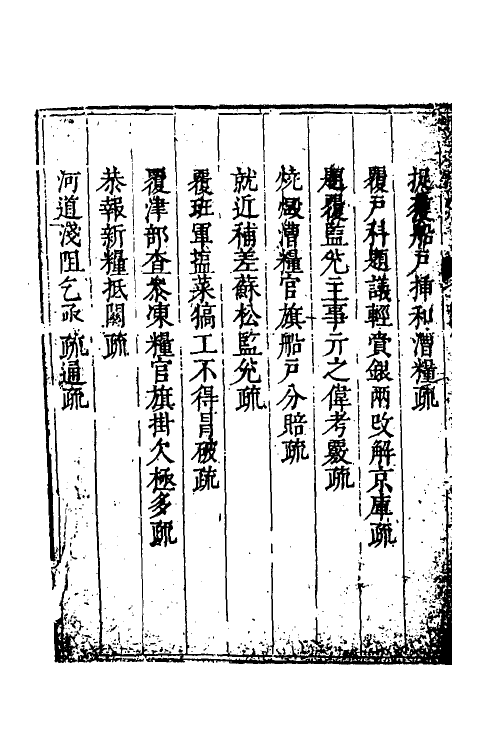 捉獲船戶揷和漕糧疏
覆戶科題議輕賫銀兩改解京庫疏
題覆監兊主事亓之偉考覈疏
燒燬漕糧官旗船戶分賠疏
就近補差蘇松監兊疏
覆班軍塩菜犒工不得冒破疏
覆津部查叅凍糧官旗掛欠極多疏
恭報新糧抵關疏
河道淺阻乞亟疏通疏